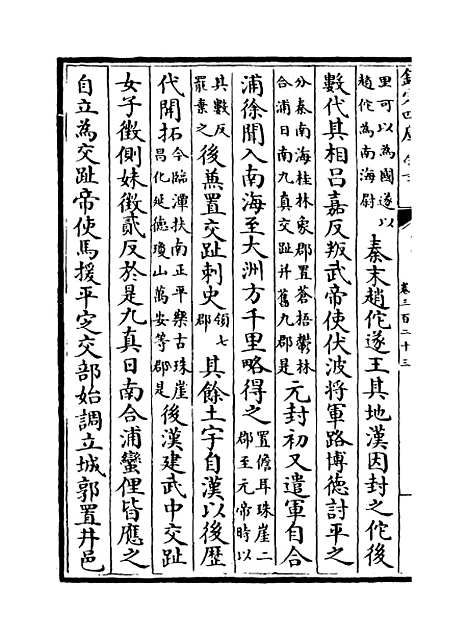 欽定四庫全書
卷三百二十三
里可以為國遂以
趙佗為南海尉
秦末趙佗遂王其地漢因封之佗後
數代其相呂嘉反叛武帝使伏波將軍路博德討平之
分秦南海桂林象郡置蒼梧鬱林
合浦日南九真交趾并舊九郡是
元封初又遣軍自合
浦徐聞入南海至大洲方千里略得之
置儋耳珠崖二
郡至元帝時以
其數反
罷棄之
後兼置交趾刺史
領七
郡
其餘土宇自漢以後歷
代開拓
今臨潭扶南正平樂古珠崖
昌化延德瓊山萬安等郡是
後漢建武中交趾
女子徵側妹徵貳反於是九真日南合浦蠻俚皆應之
自立為交趾帝使馬援平定交部始調立城郭置井邑